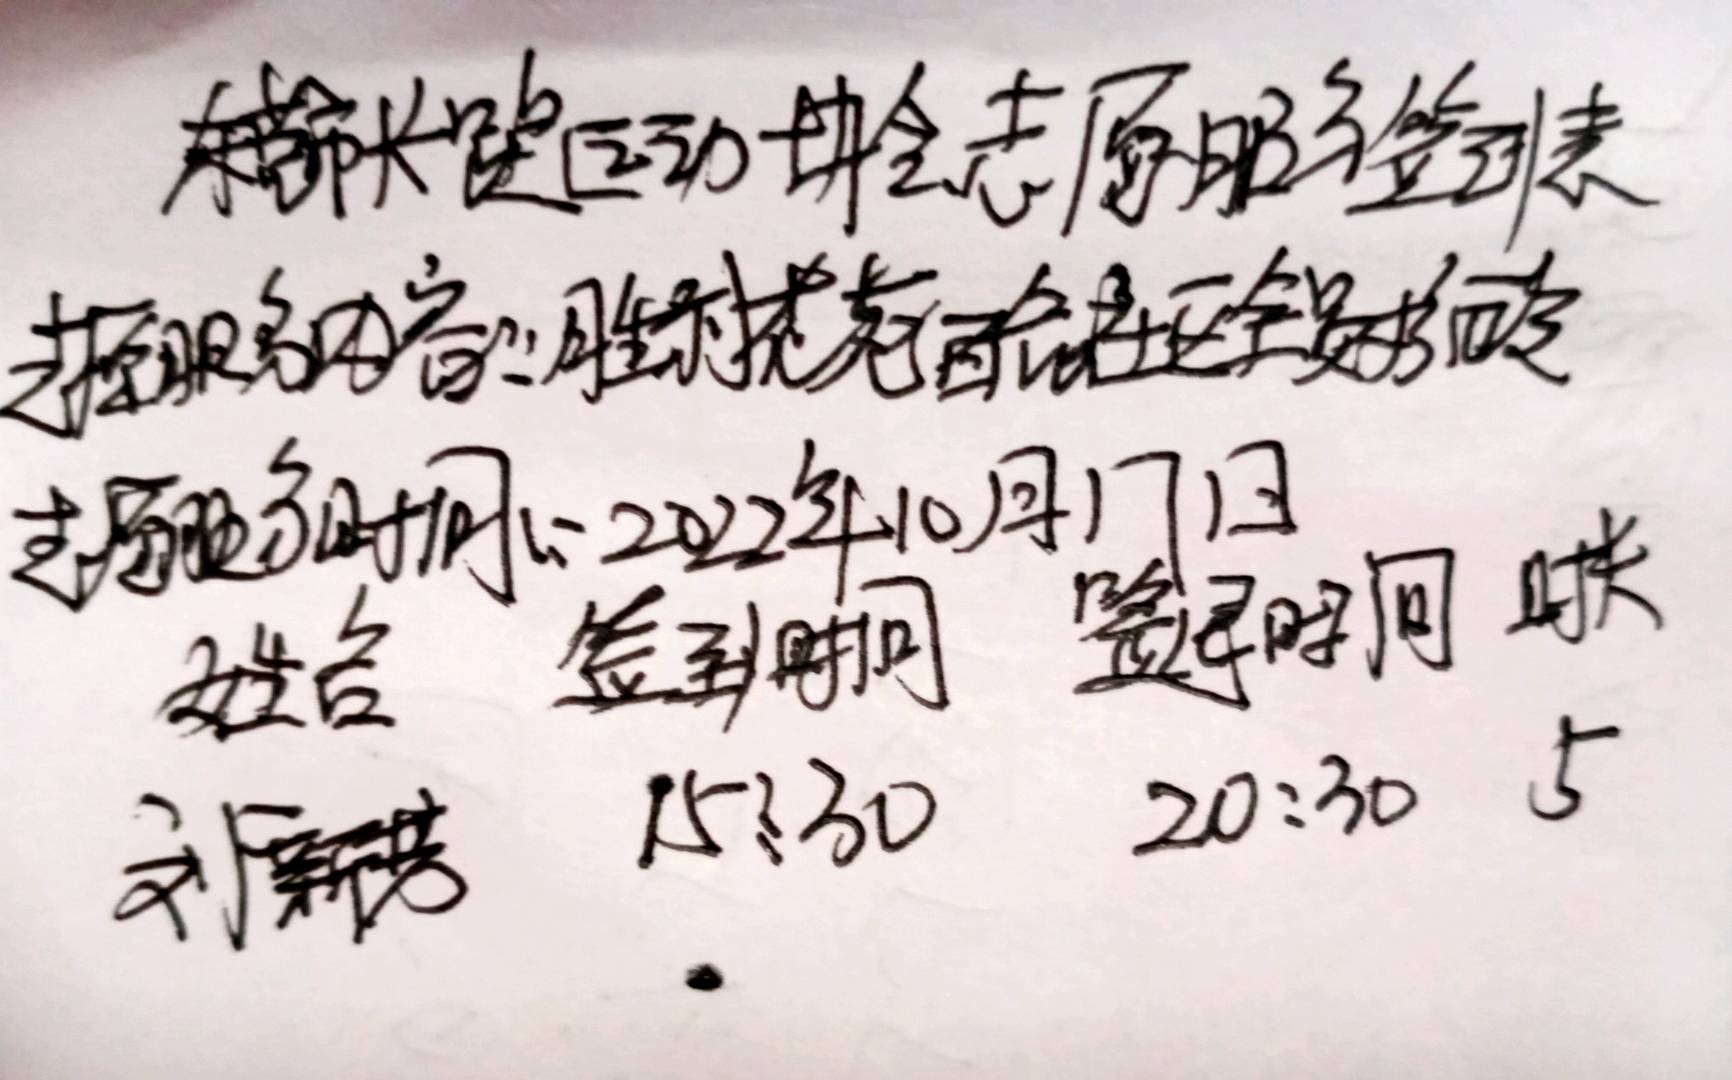 东营市长跑运动协会志愿服务签到表
志愿服务内容：胜利社区全员核酸
志愿服务时间：2022年10月17日
姓名 签到时间 签退时间 时长
刘新芳 15:30 20:30 5